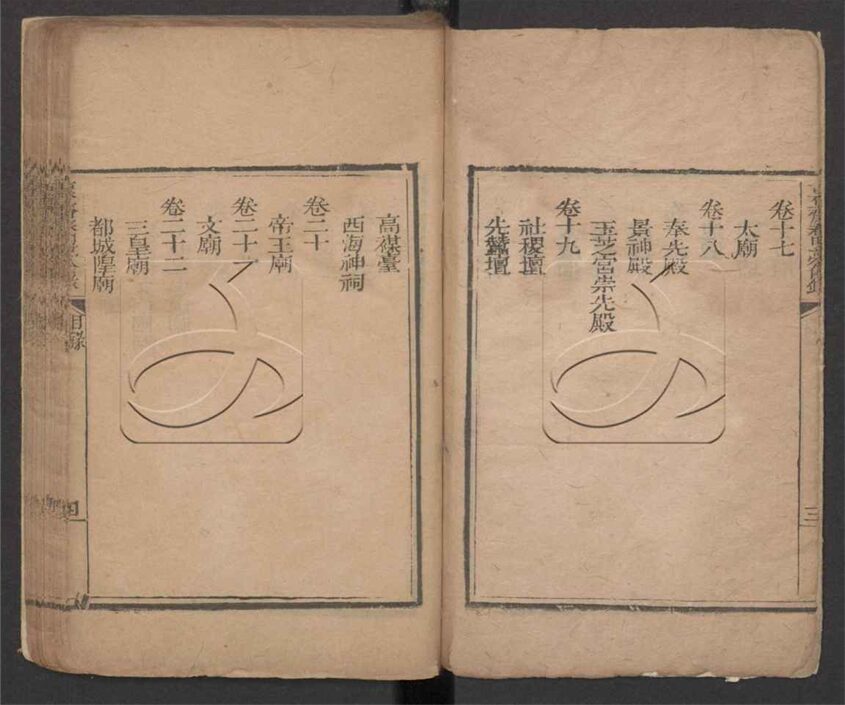 卷十七
太廟
卷十八
奉先殿
景神殿
玉芝宮崇先殿
卷十九
社稷壇
先蠶壇
三
高禖臺
西海神祠
卷二十
帝王廟
卷二十一
文廟
卷二十二
三皇廟
都城隍廟
目錄
四